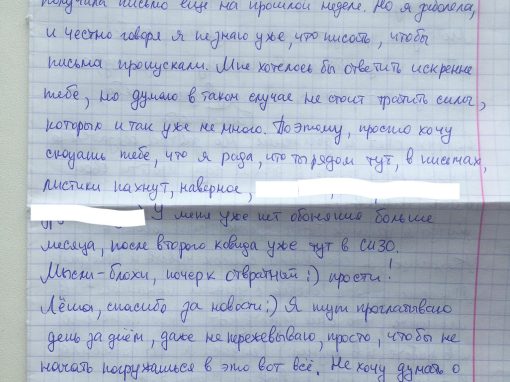 получила письмо ещё на прошлой неделе. Но я заболела,
и честно говоря я не знаю уже, что писать, чтобы
письма пропускали. Мне хотелось бы ответить искренне
тебе, но думаю в таком случае не стоит тратить силы,
которых и так уже не много. Поэтому, просто хочу
сказать тебе, что я рада, что ты рядом тут, в письмах,
листики пахнут, наверное,
У меня уже нет обоняния больше
месяца, после второго ковида уже тут в СИЗО.
Мысли-блохи, почерк отвратный :) прости!
Лёша, спасибо за новости :) Я тут проглатываю
день за днём, даже не пережевываю, просто, чтобы не
начать погружаться в это вот всё. Не хочу думать о